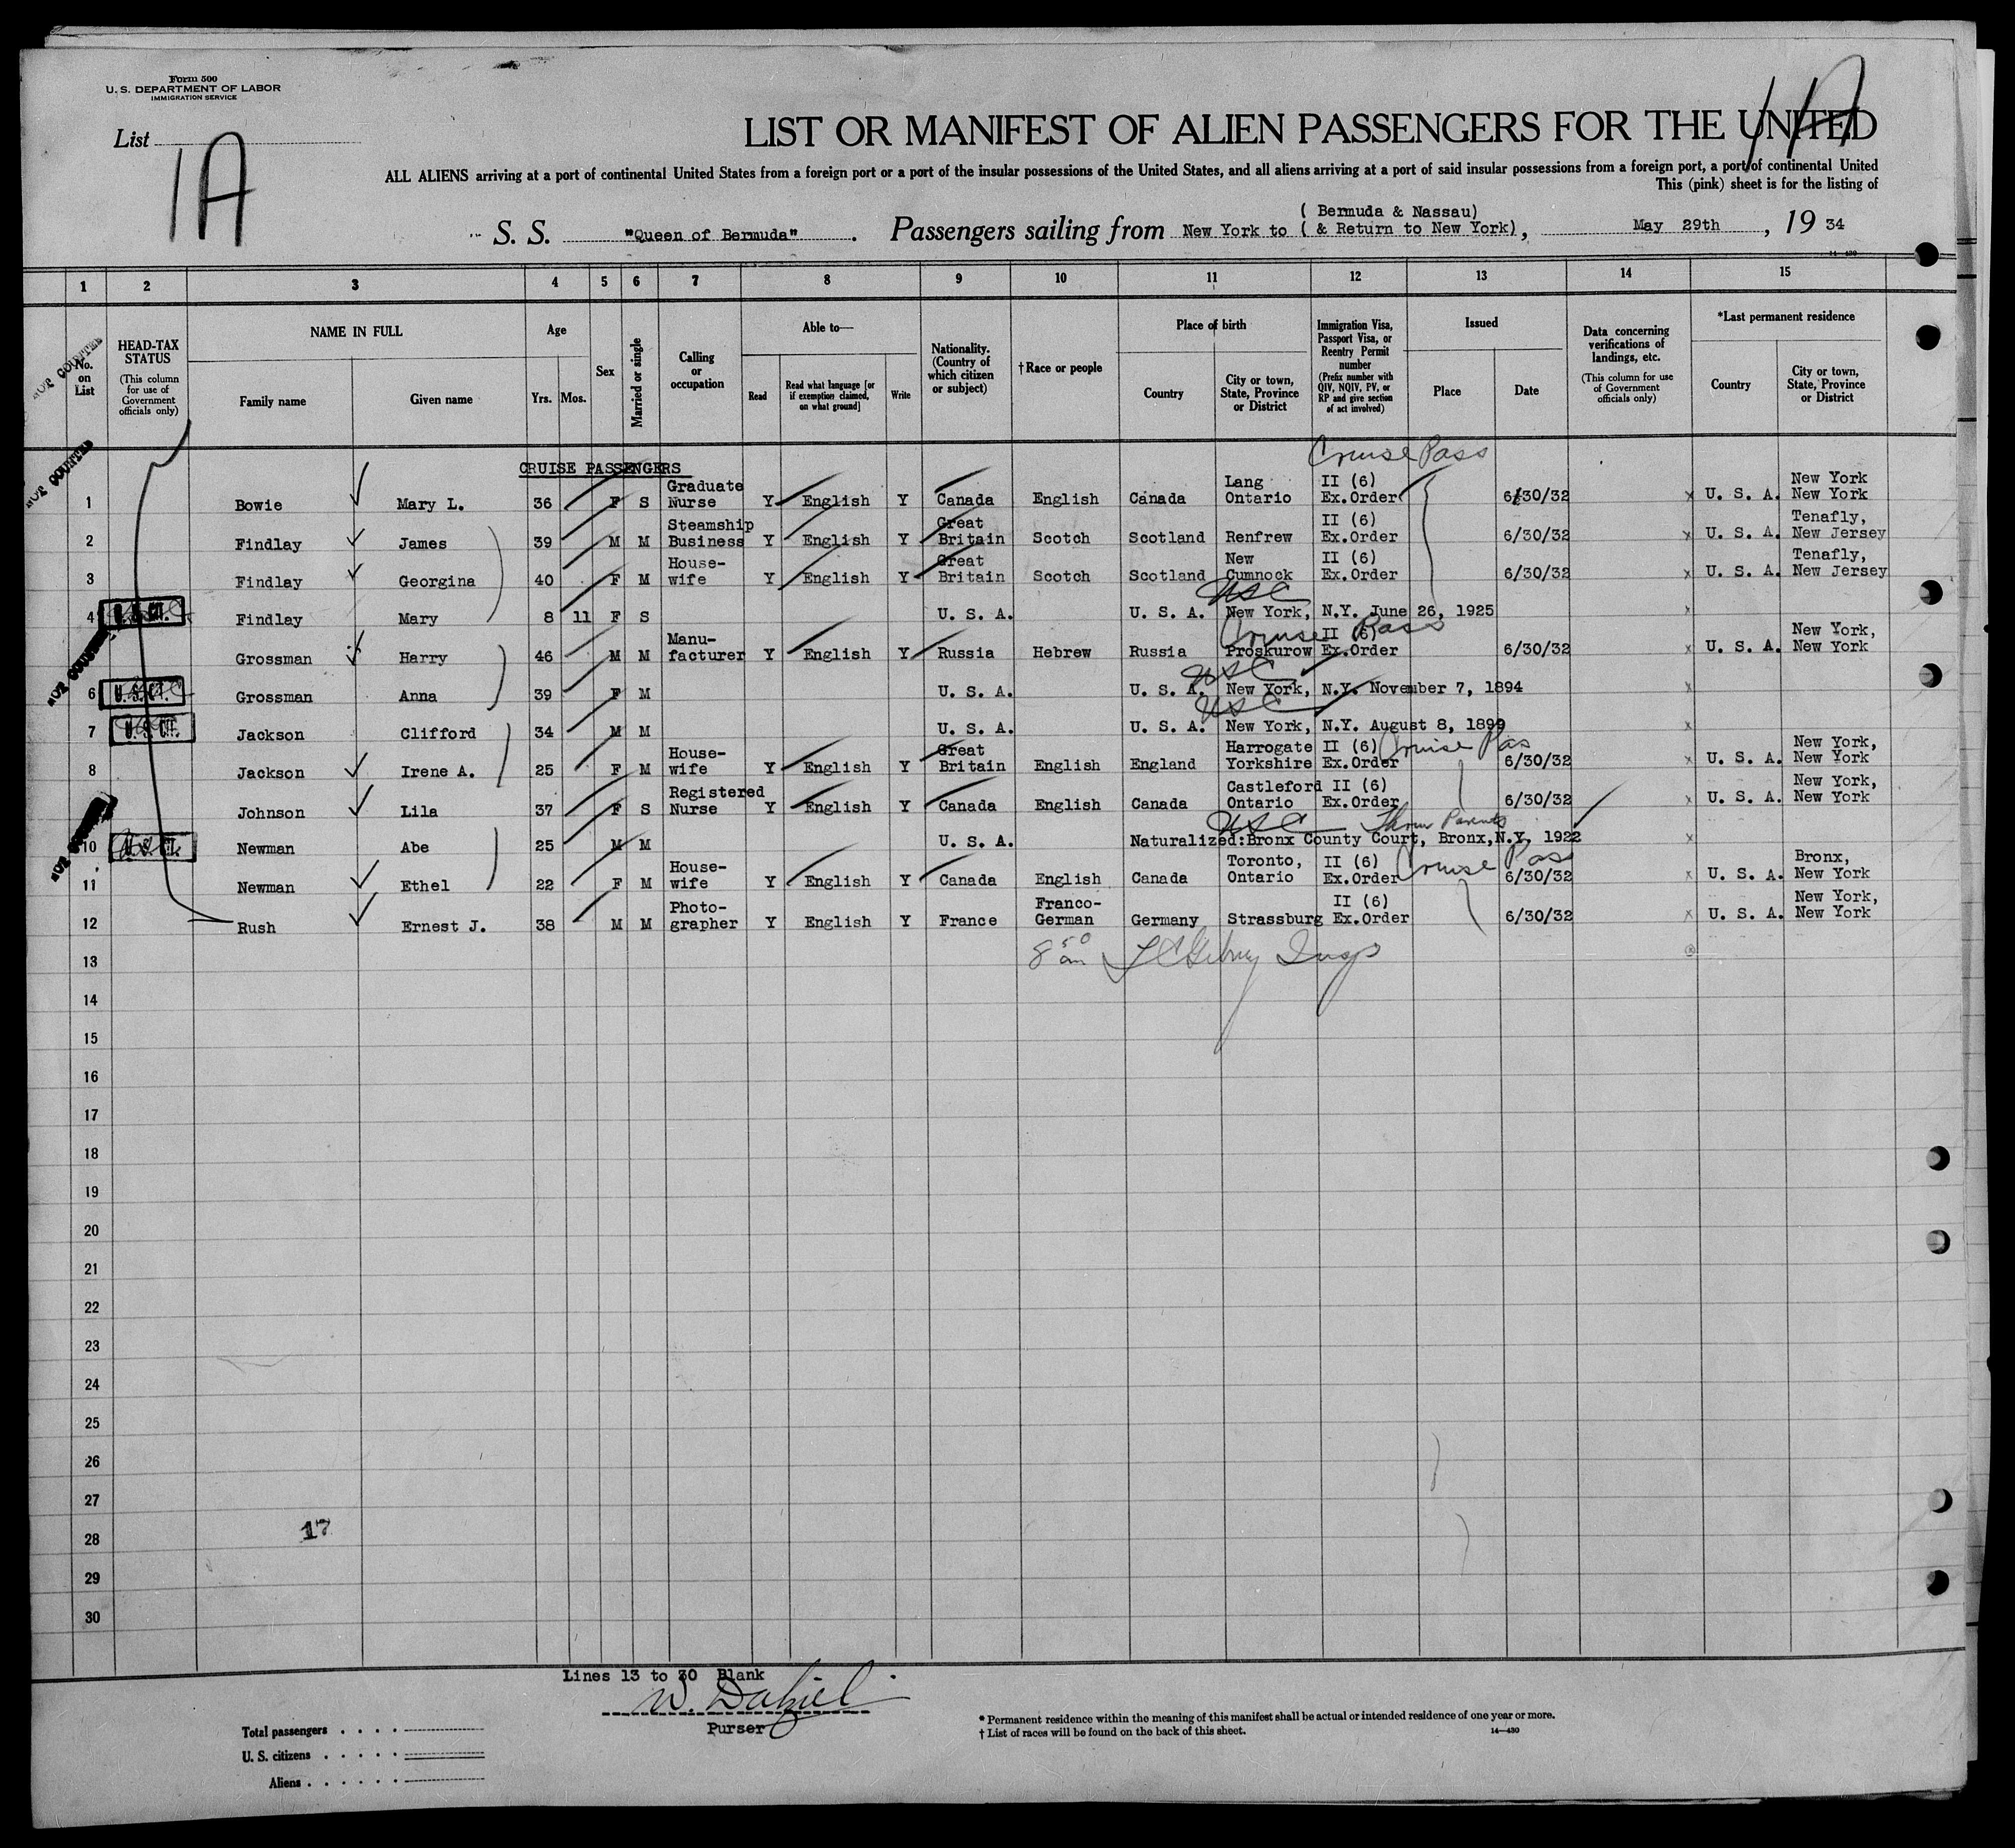 Form 500
U. S. DEPARTMENT OF LABOR
IMMIGRATION SERVICE
List
1A
1A
LIST OR MANIFEST OF ALIEN PASSENGERS FOR THE UNITED
ALL ALIENS arriving at a port of continental United States from a foreign port or a port of the insular possessions of the United States, and all aliens arriving at a port of said insular possessions from a foreign port, a port of continental United
This (pink) sheet is for the listing of
S. S. "Queen of Bermuda". Passengers sailing from New York to ( Bermuda & Nassau) ( & Return to New York), May 29th, 19 34
14—430
1 2 3 4 5 6 7 8 9 10 11 12 13 14 15
No. on List
HEAD-TAX STATUS (This column for use of Government officials only)
NAME IN FULL
Family name
Given name
Age
Yrs. Mos.
Sex
Married or single
Calling or occupation
Able to—
Read
Read what language [or if exemption claimed, on what ground]
Write
Nationality. (Country of which citizen or subject)
†Race or people
Place of birth
Country
City or town, State, Province or District
Immigration Visa, Passport Visa, or Reentry Permit number (Prefix number with QIV, NQIV, PV, or RP and give section of act involved)
Issued
Place
Date
Data concerning verifications of landings, etc. (This column for use of Government officials only)
*Last permanent residence
Country
City or town, State, Province or District
NOT COUNTED
NOT COUNTED
CRUISE PASSENGERS
Cruise Pass
1 Bowie Mary L. 36 F S Graduate Nurse Y English Y Canada English Canada Lang Ontario II (6) Ex.Order 6/30/32 x U. S. A. New York New York
2 Findlay James 39 M M Steamship Business Y English Y Great Britain Scotch Scotland Renfrew II (6) Ex.Order 6/30/32 x U. S. A. Tenafly, New Jersey
3 Findlay Georgina 40 F M House- wife Y English Y Great Britain Scotch Scotland New Cumnock II (6) Ex.Order 6/30/32 x U. S. A. Tenafly, New Jersey
USC
4 U. S. CIT. Findlay Mary 8 11 F S U. S. A. U. S. A. New York, N.Y. June 26, 1925 x
Cruise Pass
NOT COUNTED
Grossman Harry 46 M M Manu- facturer Y English Y Russia Hebrew Russia Proskurow II (6) Ex.Order 6/30/32 x U. S. A. New York, New York
USC
6 U. S. CIT. Grossman Anna 39 F M U. S. A. U. S. A. New York, N.Y. November 7, 1894 x
USC
7 U. S. CIT. Jackson Clifford 34 M M U. S. A. U. S. A. New York, N.Y. August 8, 1899 x
8 Jackson Irene A. 25 F M House- wife Y English Y Great Britain English England Harrogate Yorkshire II (6) Ex.Order Cruise Pas 6/30/32 x U. S. A. New York, New York
Johnson Lila 37 F S Registered Nurse Y English Y Canada English Canada Castleford Ontario II (6) Ex.Order 6/30/32 x U. S. A. New York, New York
USC Thru Parents
10 U. S. CIT. Newman Abe 25 M M U. S. A. Naturalized:Bronx County Court, Bronx,N.Y. 1922 x
11 Newman Ethel 22 F M House- wife Y English Y Canada English Canada Toronto, Ontario II (6) Ex.Order Cruise Pass 6/30/32 x U. S. A. Bronx, New York
12 Rush Ernest J. 38 M M Photo- grapher Y English Y France Franco- German Germany Strassburg II (6) Ex.Order 6/30/32 x U. S. A. New York, New York
13 8 50 am Insp
14
15
16
17
18
19
20
21
22
23
24
25
26
27
28 17
29
30
Lines 13 to 30 Blank
Purser
Total passengers
U. S. citizens
Aliens
* Permanent residence within the meaning of this manifest shall be actual or intended residence of one year or more.
† List of races will be found on the back of this sheet.
14—430